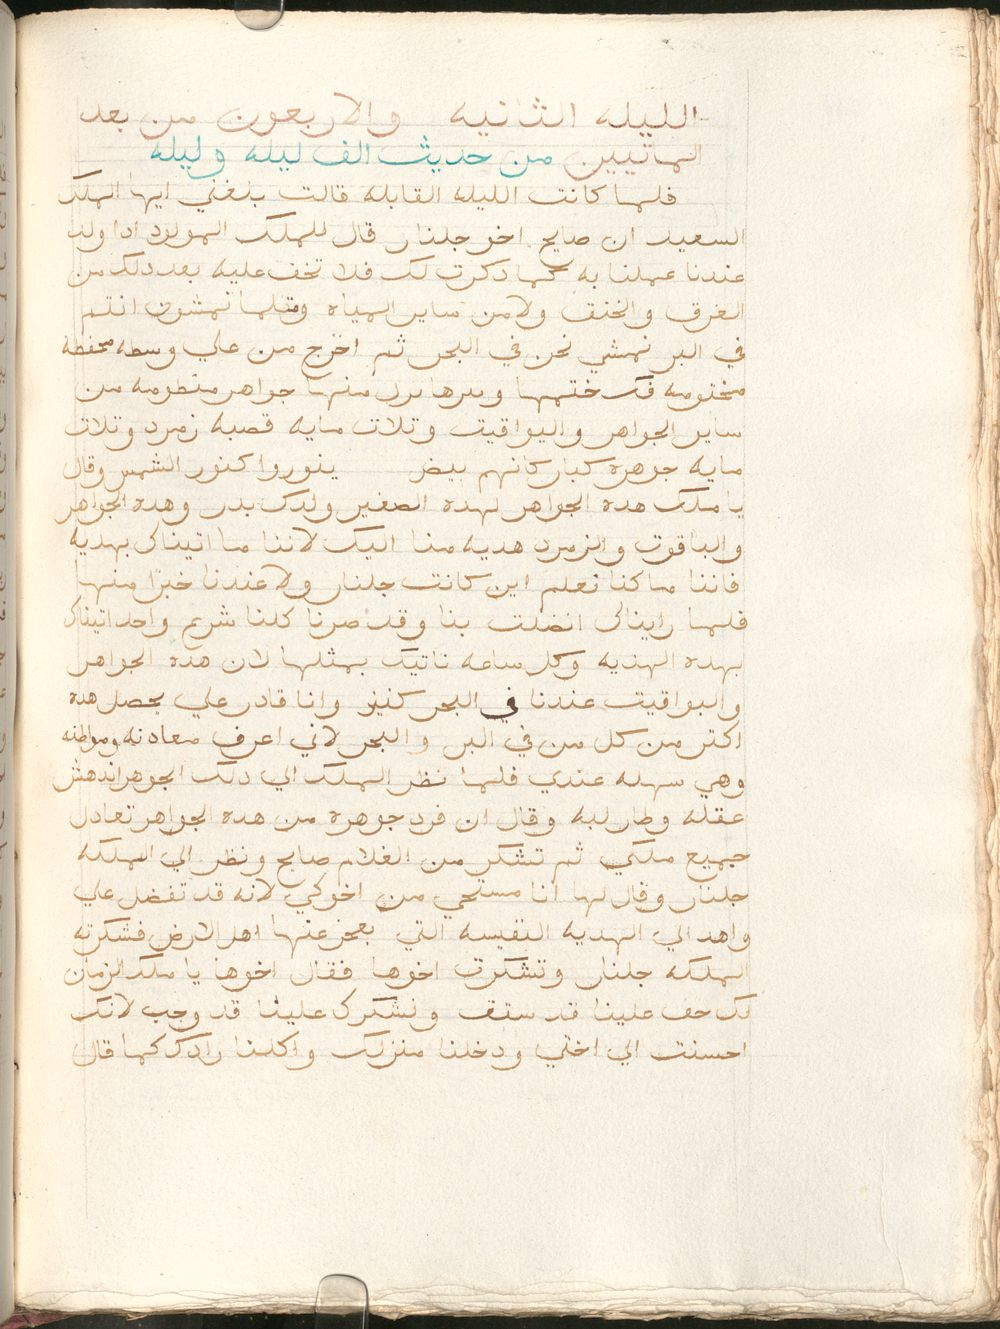 الليله الثانيه والاربعون من بعد
المايتين من حديث الف ليله وليله
فلما كانت الليله القابله قالت بلغني ايها الملك
السعيد ان صايح اخو جلنار قال للملك المولود ادا ولد
عندنا عملنا به كما دكرت لك فلا تخف عليه بعد دلك من
الغرق والخنق ولا من ساير المياه ومتلما تمشون انتم
في البر نمشي نحن في البحر ثم اخرج من علي وسطه محفظه
مختومه فك ختمها ونترها نزل منها جواهر منظومه من
ساير الجواهر واليواقيت وتلات مايه قصبه زمرد وتلات
مايه جوهره كبار كانهم بيض ينوروا كنور الشمس وقال
يا ملك هده الجواهر لهده الصغير ولدك بدر وهده الجواهر
والياقوت والزمرد هديه منا اليك لاننا ما اتيناك بهديه
فاننا ما كنا نعلم اين كانت جلنار ولا عندنا خبرا منها
فلما رايناك اتصلت بنا وقد صرنا كلنا شريم واحد اتيناك
بهده الهديه وكل ساعه ناتيك بمثلها لان هده الجواهر
واليواقيت عندنا في البحر كتير وانا قادر علي تحصل هده
اكتر من كل من في البر والبحر لاني اعرف معادنه ومواطنه
وهي سهله عندي فلما نظر الملك الي دلك الجوهر اندهش
عقله وطار لبه وقال ان فرد جوهره من هده الجواهر تعادل
جميع ملكي ثم تشكر من الغلام صايح ونظر الي الملكه
جلنار وقال لها انا مستحي من اخوكي لانه قد تفضل علي
واهد الي الهديه النفيسه التي يعجز عنها اهل الارض فشكرته
الملكه جلنار وتشكرت اخوها فقال اخوها يا ملك الزمان
لك حق علينا قد سبق ونشكرك علينا قد وجب لانك
احسنت الي اختي ودخلنا منزلك واكلنا زادك كما قال